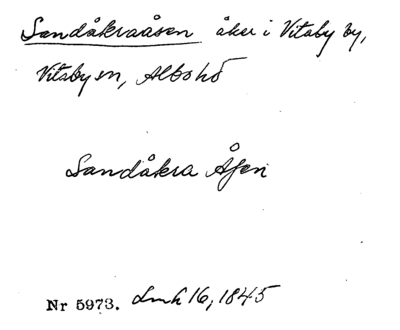 Sandåkraåsen åker i Vitaby by,
Vitaby sn, Albo hd
Sandåkra Åsen
Nr 5973. Lmh 16, 1845